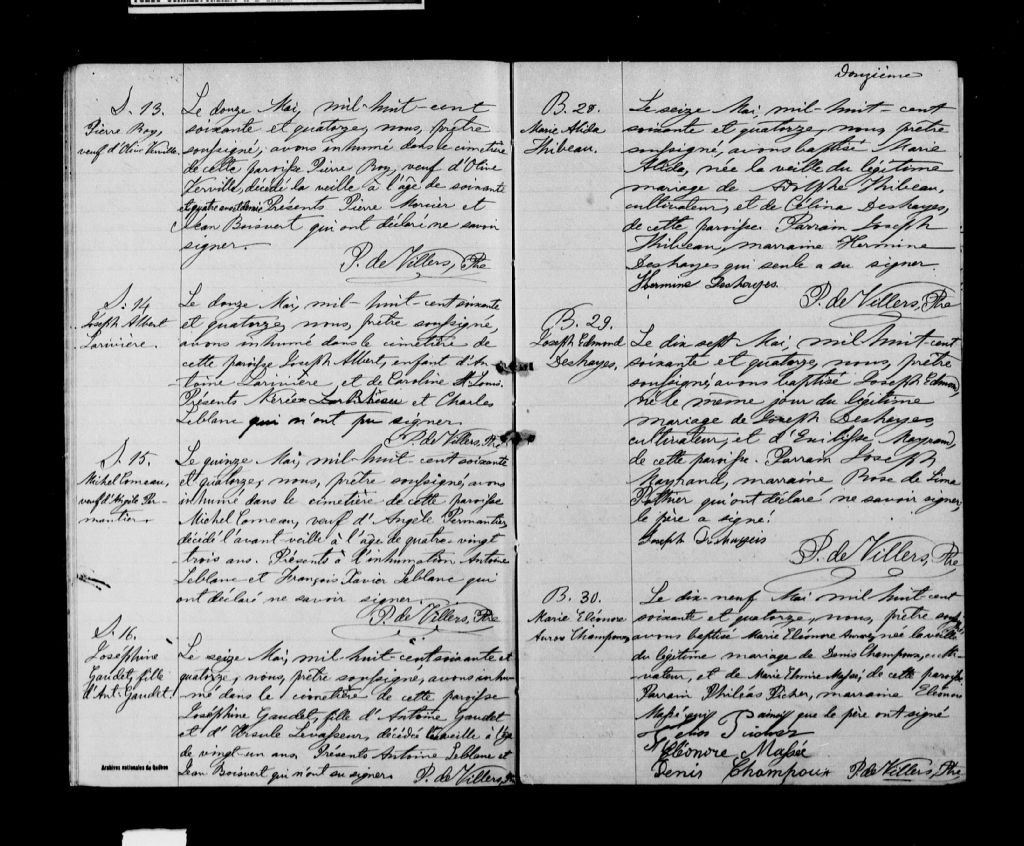 S. 13.
Pierre Roy,
veuf d'Olive Verville.
Le douze Mai, mil-huit-cent
soixante et quatorze, nous, prêtre
soussigné, avons inhumé dans le cimetière
de cette paroisse Pierre Roy, veuf d'Olive
Verville, décédé la veille à l'âge de soixante
et quatre ans et demie Présents Pierre Mercier et
Jean Boisvert qui ont déclaré ne savoir
signer.
P. de Villers, Ptre
S. 14
Joseph Albert
Larivière.
Le douze Mai, mil-huit-cent soixante
et quatorze, nous, prêtre soussigné,
avons inhumé dans le cimetière de
cette paroisse Joseph Albert, enfant d'An-
toine Larivière, et de Caroline St Louis.
Présents et Charles
Leblanc qui n'ont pu signer.
P. de Villers, Ptre
S. 15.
Michel Comeau,
veuf d'Angèle Per-
mantier.
Le quinze Mai, mil-huit-cent soixante
et quatorze, nous, prêtre soussigné, avons
inhumé dans le cimetière de cette paroisse
Michel Comeau, veuf d'Angèle Permantier,
décédé l'avant-veille à l'âge de quatre-vingt
trois ans. Présents à l'inhumation Antoine
Leblanc et François Xavier Leblanc qui
ont déclaré ne savoir signer.
P. de Villers, Ptre
S. 16.
Joséphine
Gaudet, fille
d'Ant. Gaudet.
Le seize Mai, mil-huit-cent soixante et
quatorze, nous, prêtre soussigné, avons inhu-
mé dans le cimetière de cette paroisse
Joséphine Gaudet, fille d'Antoine Gaudet
et d'Ursule Levasseur, décédée la veille à l'âge
de vingt-un ans. Présents Antoine Leblanc et
Jean Boisvert qui n'ont su signer. P. de Villers, Ptre
Archives nationales du Québec
Douzième
B. 28.
Marie Alida
Thibeau.
Le seize Mai, mil-huit-cent
soixante et quatorze, nous, prêtre
soussigné, avons baptisé Marie
Alida, née la veille du légitime
mariage de Adolphe Thibeau,
cultivateur, et de Célina Deshayes,
de cette paroisse. Parrain Joseph
Thibeau, marraine Hermine
Deshayes qui seule a su signer.
Hermine Deshayes.
P. de Villers, Ptre
B. 29.
Joseph Edmond
Deshayes,
Le dix-sept Mai, mil-huit-cent
soixante et quatorze, nous, prêtre
soussigné, avons baptisé Joseph Edmond,
né le même jour du légitime
mariage de Joseph Deshayes
cultivateur, et d' Mayrand,
de cette paroisse. Parrain Joseph
Mayrand, marraine Rose de Lima
qui ont déclaré ne savoir signer,
le père a signé.
Joseph
P. de Villers, Ptre
B. 30.
Marie Eléonore
Aurore Champoux,
Le dix-neuf Mai mil huit cent
soixante et quatorze, nous, prêtre soussigné
avons baptisé Marie Eléonore Aurore, née la veille
du légitime mariage de Denis Champoux, culti-
vateur, et de Marie Elmire Massé, de cette paroisse
Parrain Philéas Picher, marraine Eléonore
Massé qui ainsi que le père ont signé
Eléonore Massé
Denis Champoux P. de Villers, Ptre